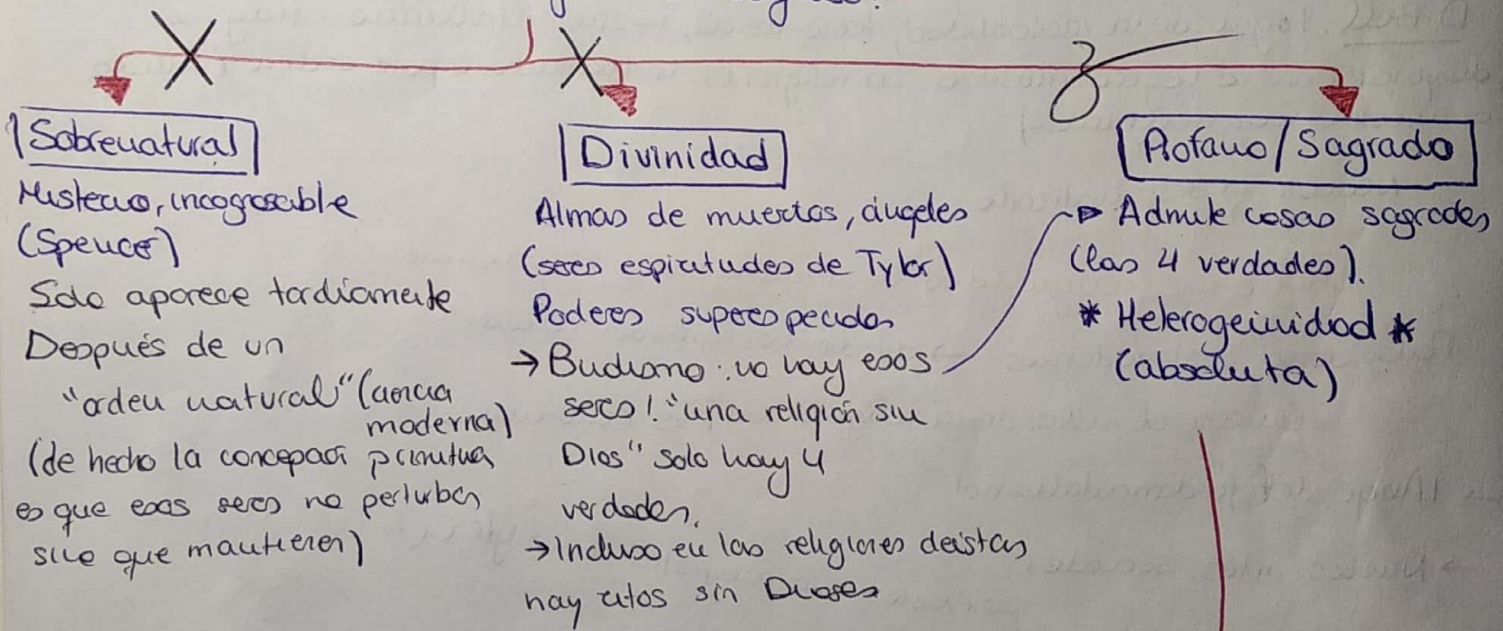 Sobrenatural
Misterio, incognoscible
(Spencer)
Solo aparece tardíamente
Después de un
"orden natural" (ciencia
moderna)
(de hecho la concepción primitiva
es que esos seres no perturban
sino que mantienen)
Divinidad
Almas de muertos, ángeles
(seres espirituales de Tylor)
Poderes superes
→ Budismo: no hay esos
seres! "una religión sin
Dios" solo hay 4
verdades.
→ Incluso en las religiones deistas
hay ritos sin Dioses
Profano/Sagrado
Admite cosas sagradas
(las 4 verdades).
* Heterogeinidad *
(absoluta)